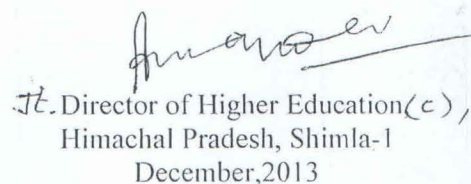 Jt. Director of Higher Education(c),
Himachal Pradesh, Shimla-1
December,2013